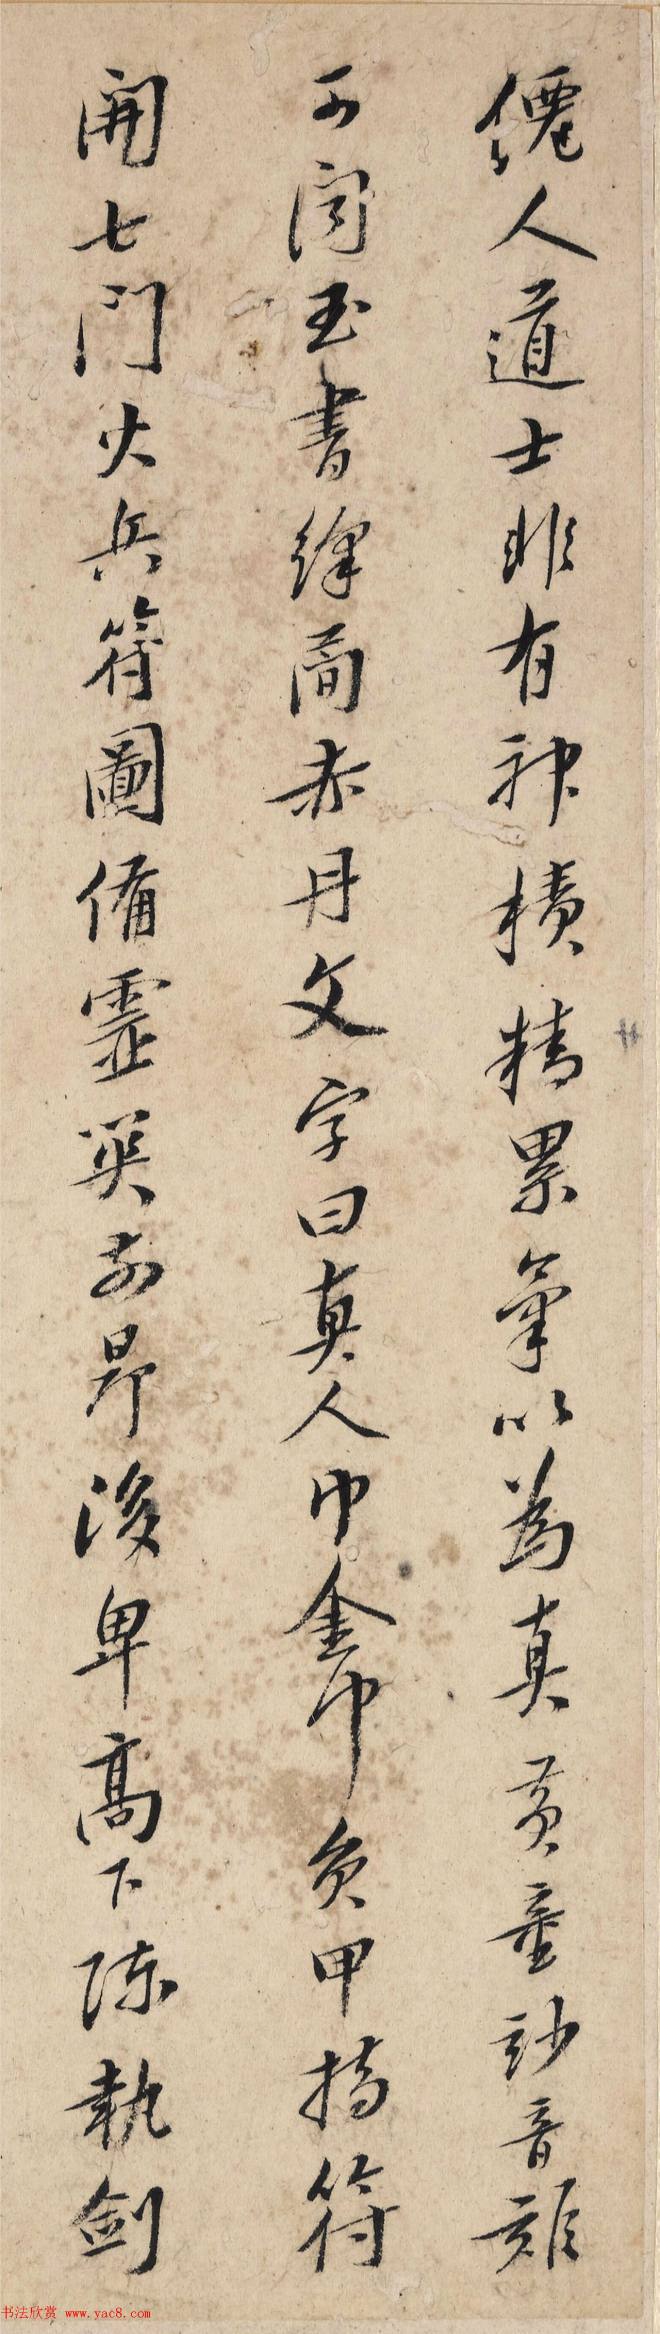 僊人道士非有神積精累氣以為真黃童妙音難
可聞玉書絳簡赤丹文字曰真人巾金巾負甲持符
開七門火兵符圖備靈關前昂後卑高下陳執劍
书法欣赏 www.yac8.com